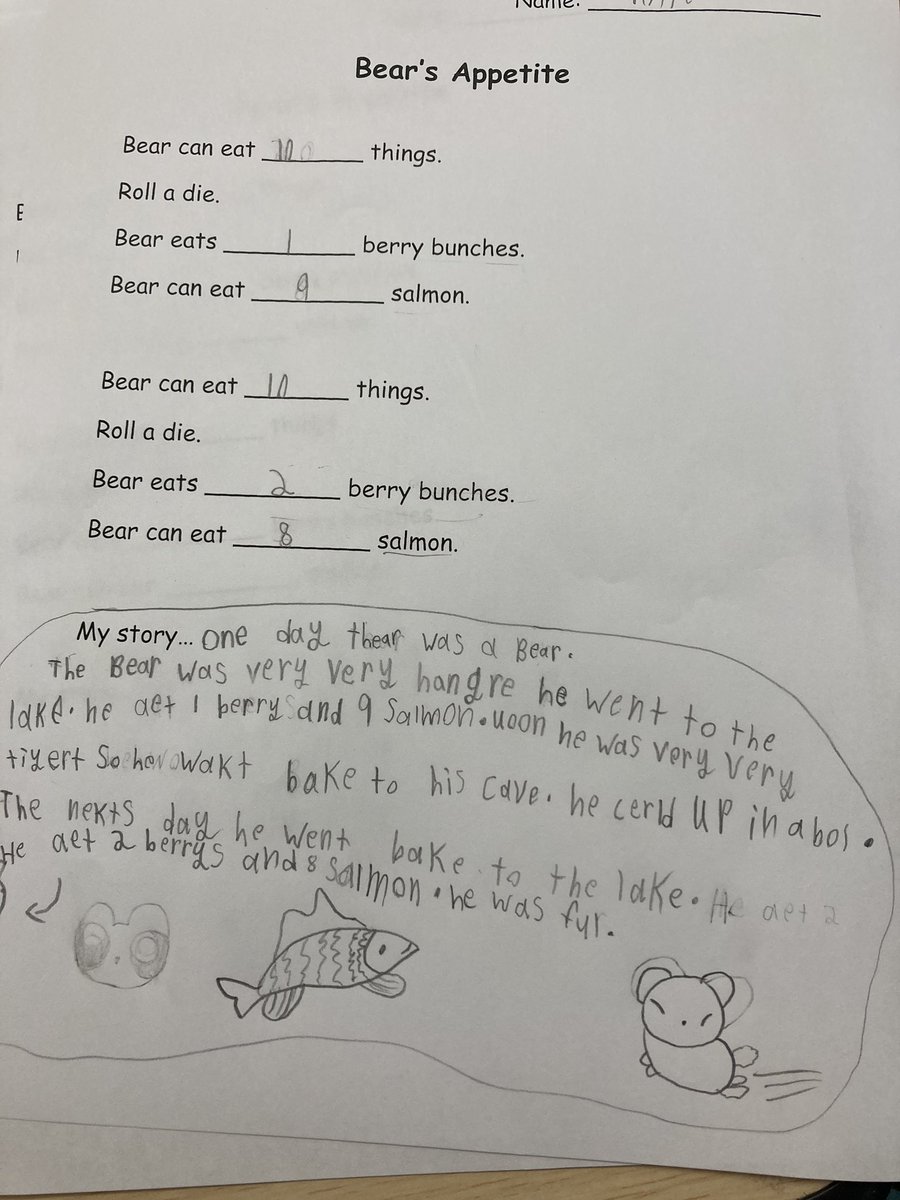 Name:
Bear's Appetite
Bear can eat 10 things.
Roll a die.
Bear eats 1 berry bunches.
Bear can eat 9 salmon.
Bear can eat 10 things.
Roll a die.
Bear eats 2 berry bunches.
Bear can eat 8 salmon.
My story... one day thear was a Bear.
The Bear was very very hangre he went to the
lake. he aet 1 berrys and 9 Salmon. uoon he was very very
tiyert So he wakt bake to his cave. he cerld up in a bol.
The nekts day he went bake to the lake. He aet 2
He aet 2 berrys and 8 salmon. he was fyr.